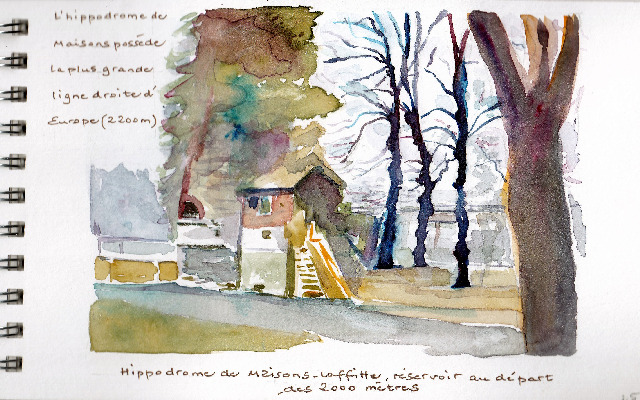 L'hippodrome de
Maisons possède
la plus grande
ligne droite d'
Europe (2200m)
Hippodrome de Maisons-Laffitte, réservoir au départ
des 2000 mètres